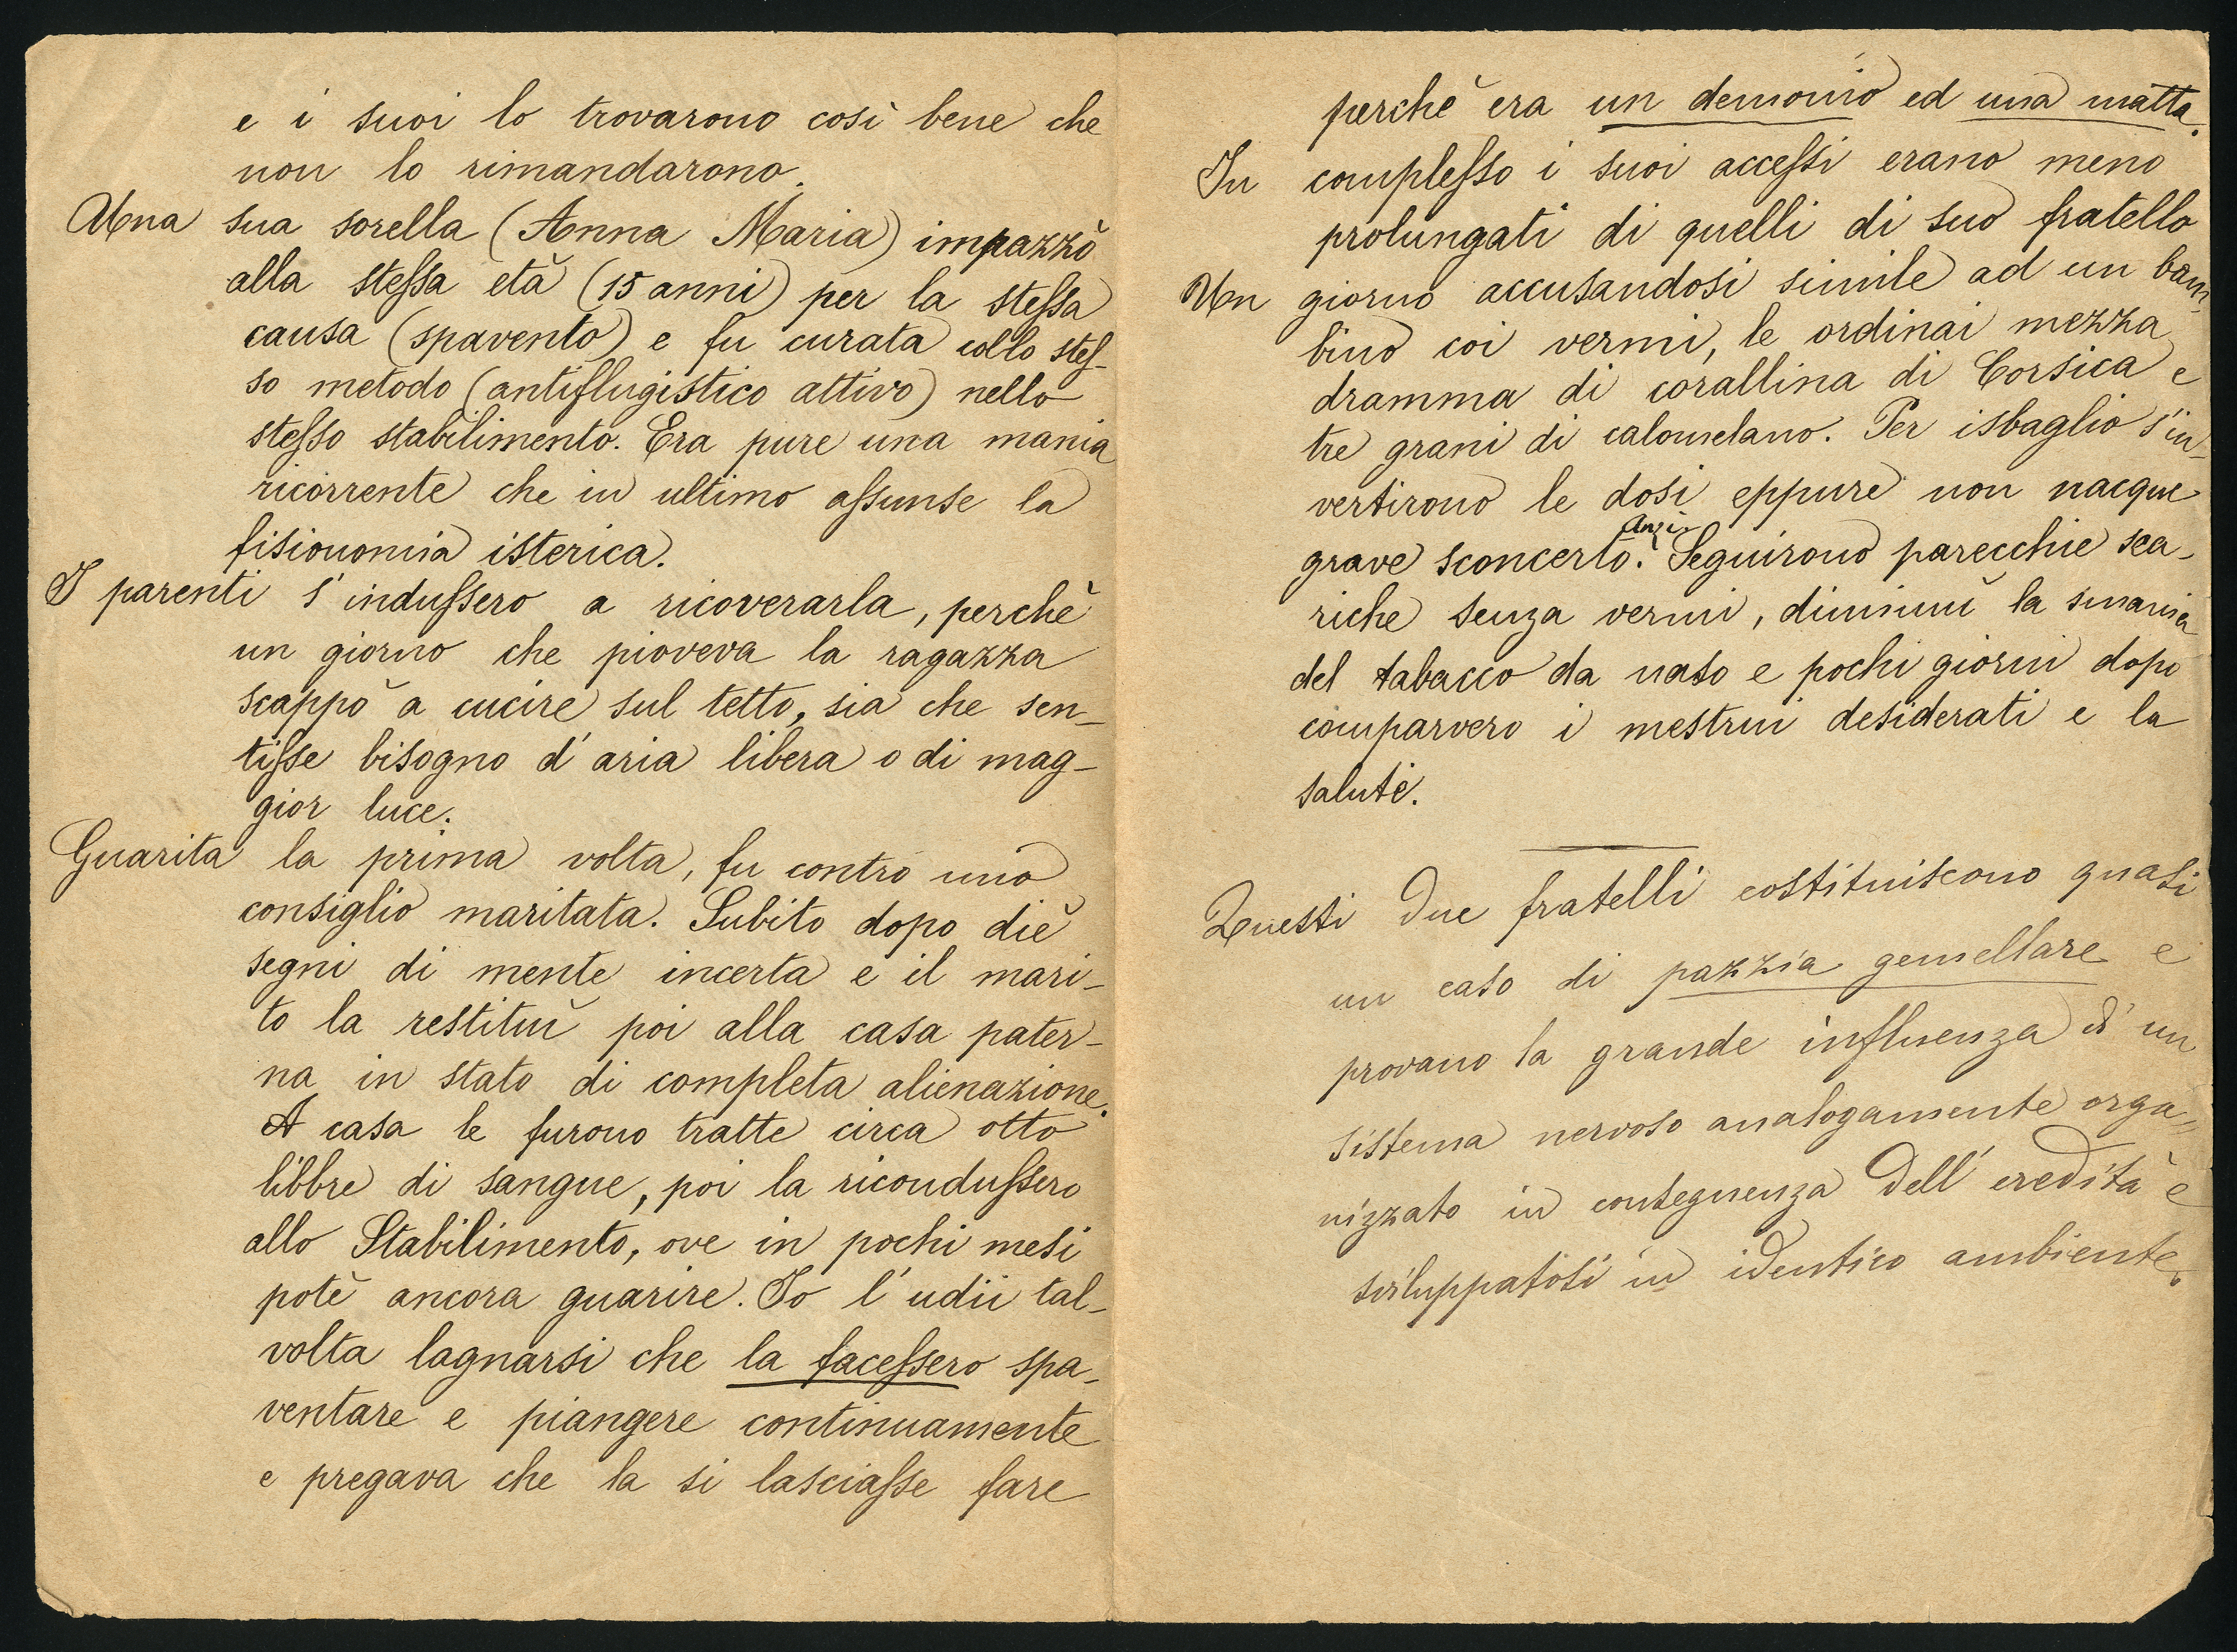 e i suoi lo trovarono così bene che
non lo rimandarono.
Una sua sorella (Anna Maria) impazzò
alla stessa età (15 anni) per la stessa
causa (spavento) e fu curata collo stes-
so metodo (antiflugistico attivo) nello
stesso stabilimento. Era pure una mania
ricorrente che in ultimo assunse la
fisionomia isterica.
I parenti s'indussero a ricoverarla, perchè
un giorno che pioveva la ragazza
scappò a cucire sul tetto, sia che sen-
tisse bisogno d'aria libera o di mag-
gior luce.
Guarita la prima volta, fu contro mio
consiglio maritata. Subito dopo diè
segni di mente incerta e il mari-
to la restituì poi alla casa pater-
na in stato di completa alienazione.
A casa le furono tratte circa otto
libbre di sangue, poi la ricondussero
allo Stabilimento, ove in pochi mesi
potè ancora guarire. Io l'udii tal-
volta lagnarsi che la facessero spa-
ventare e piangere continuamente
e pregava che la si lasciasse fare
perchè era un demonio ed una matta.
In complesso i suoi accessi erano meno
prolungati di quelli di suo fratello
Un giorno accusandosi simile ad un bam-
bino coi vermi, le ordinai mezza
dramma di corallina di Corsica e
tre grani di calomelano. Per isbaglio s'in-
vertirono le dosi eppure non nacque
grave sconcerto. Anzi Seguirono parecchie sca-
riche senza vermi, diminuì la smania
del tabacco da naso e pochi giorni dopo
comparvero i mestrui desiderati e la
salute.
Questi due fratelli costituiscono quasi
un caso di pazzia gemellare e
provano la grande influenza d'un
sistema nervoso analogamente orga=
nizzato in conseguenza dell'eredità e
sviluppatosi in identico ambiente.